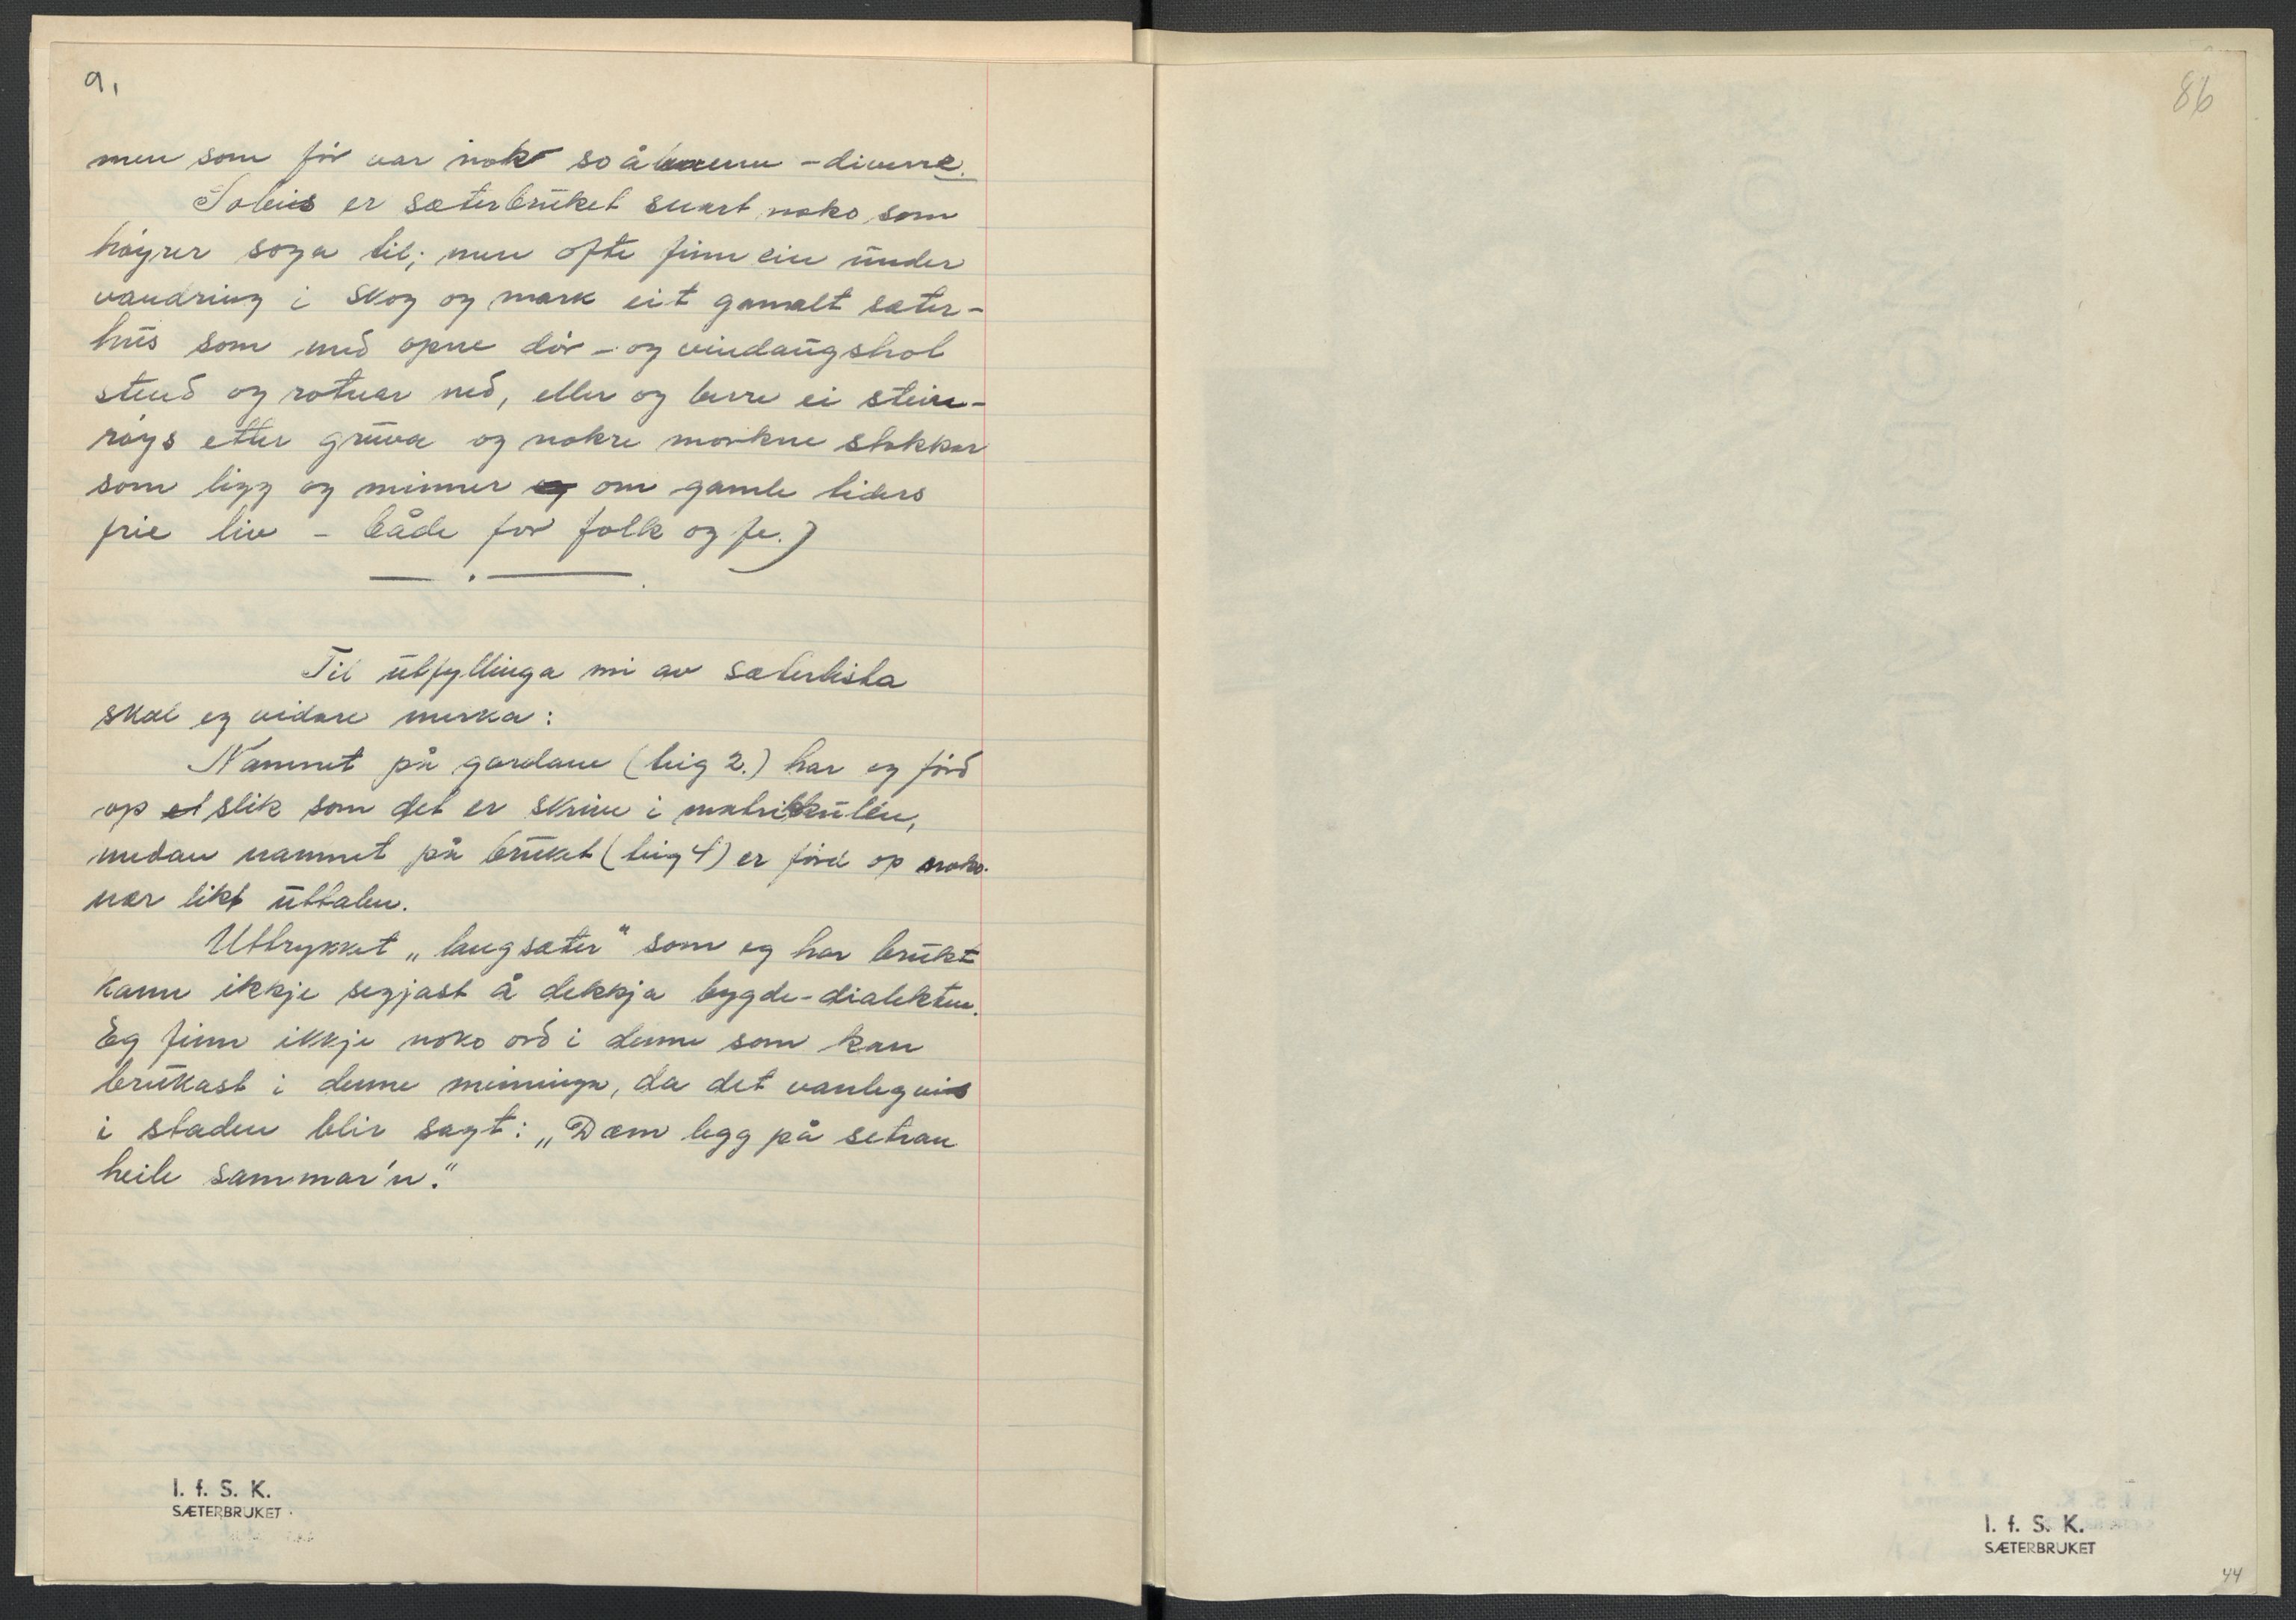 9.
men som för var nok so ålmenn - diverre.
Soleis er sæterbruket snart noko som
höyrer soga til; men ofte finn ein under
vandring i skog og mark eit gamalt sæter-
hus som med opne dör- og vindaugshol
stend og rotnar ned, eller og berre ei stein-
röys etter gruva og nokre morkne stokkar
som ligg og minner om gamle tiders
frie liv - både for folk og fe.)
Til utfyllinga mi av sæterlista
skal eg vidare merka:
Namnet på gardane (teig 2.) har eg förd
op slik som det er skrive i matrikkulen,
medan namnet på bruket (teig 4) er förd op noko
nær likt uttalen.
Uttrykket „langsæter" som eg har brukt
kann ikkje segjast å dekkja bygde-dialekten.
Eg finn ikkje noko ord i denne som kan
brukast i denne meininga, da det vanlegvis
i staden blir sagt: „Dæm legg på setran
heile sammar'n."
I. f. S. K.
SÆTERBRUKET
86
I. f. S. K.
SÆTERBRUKET
44